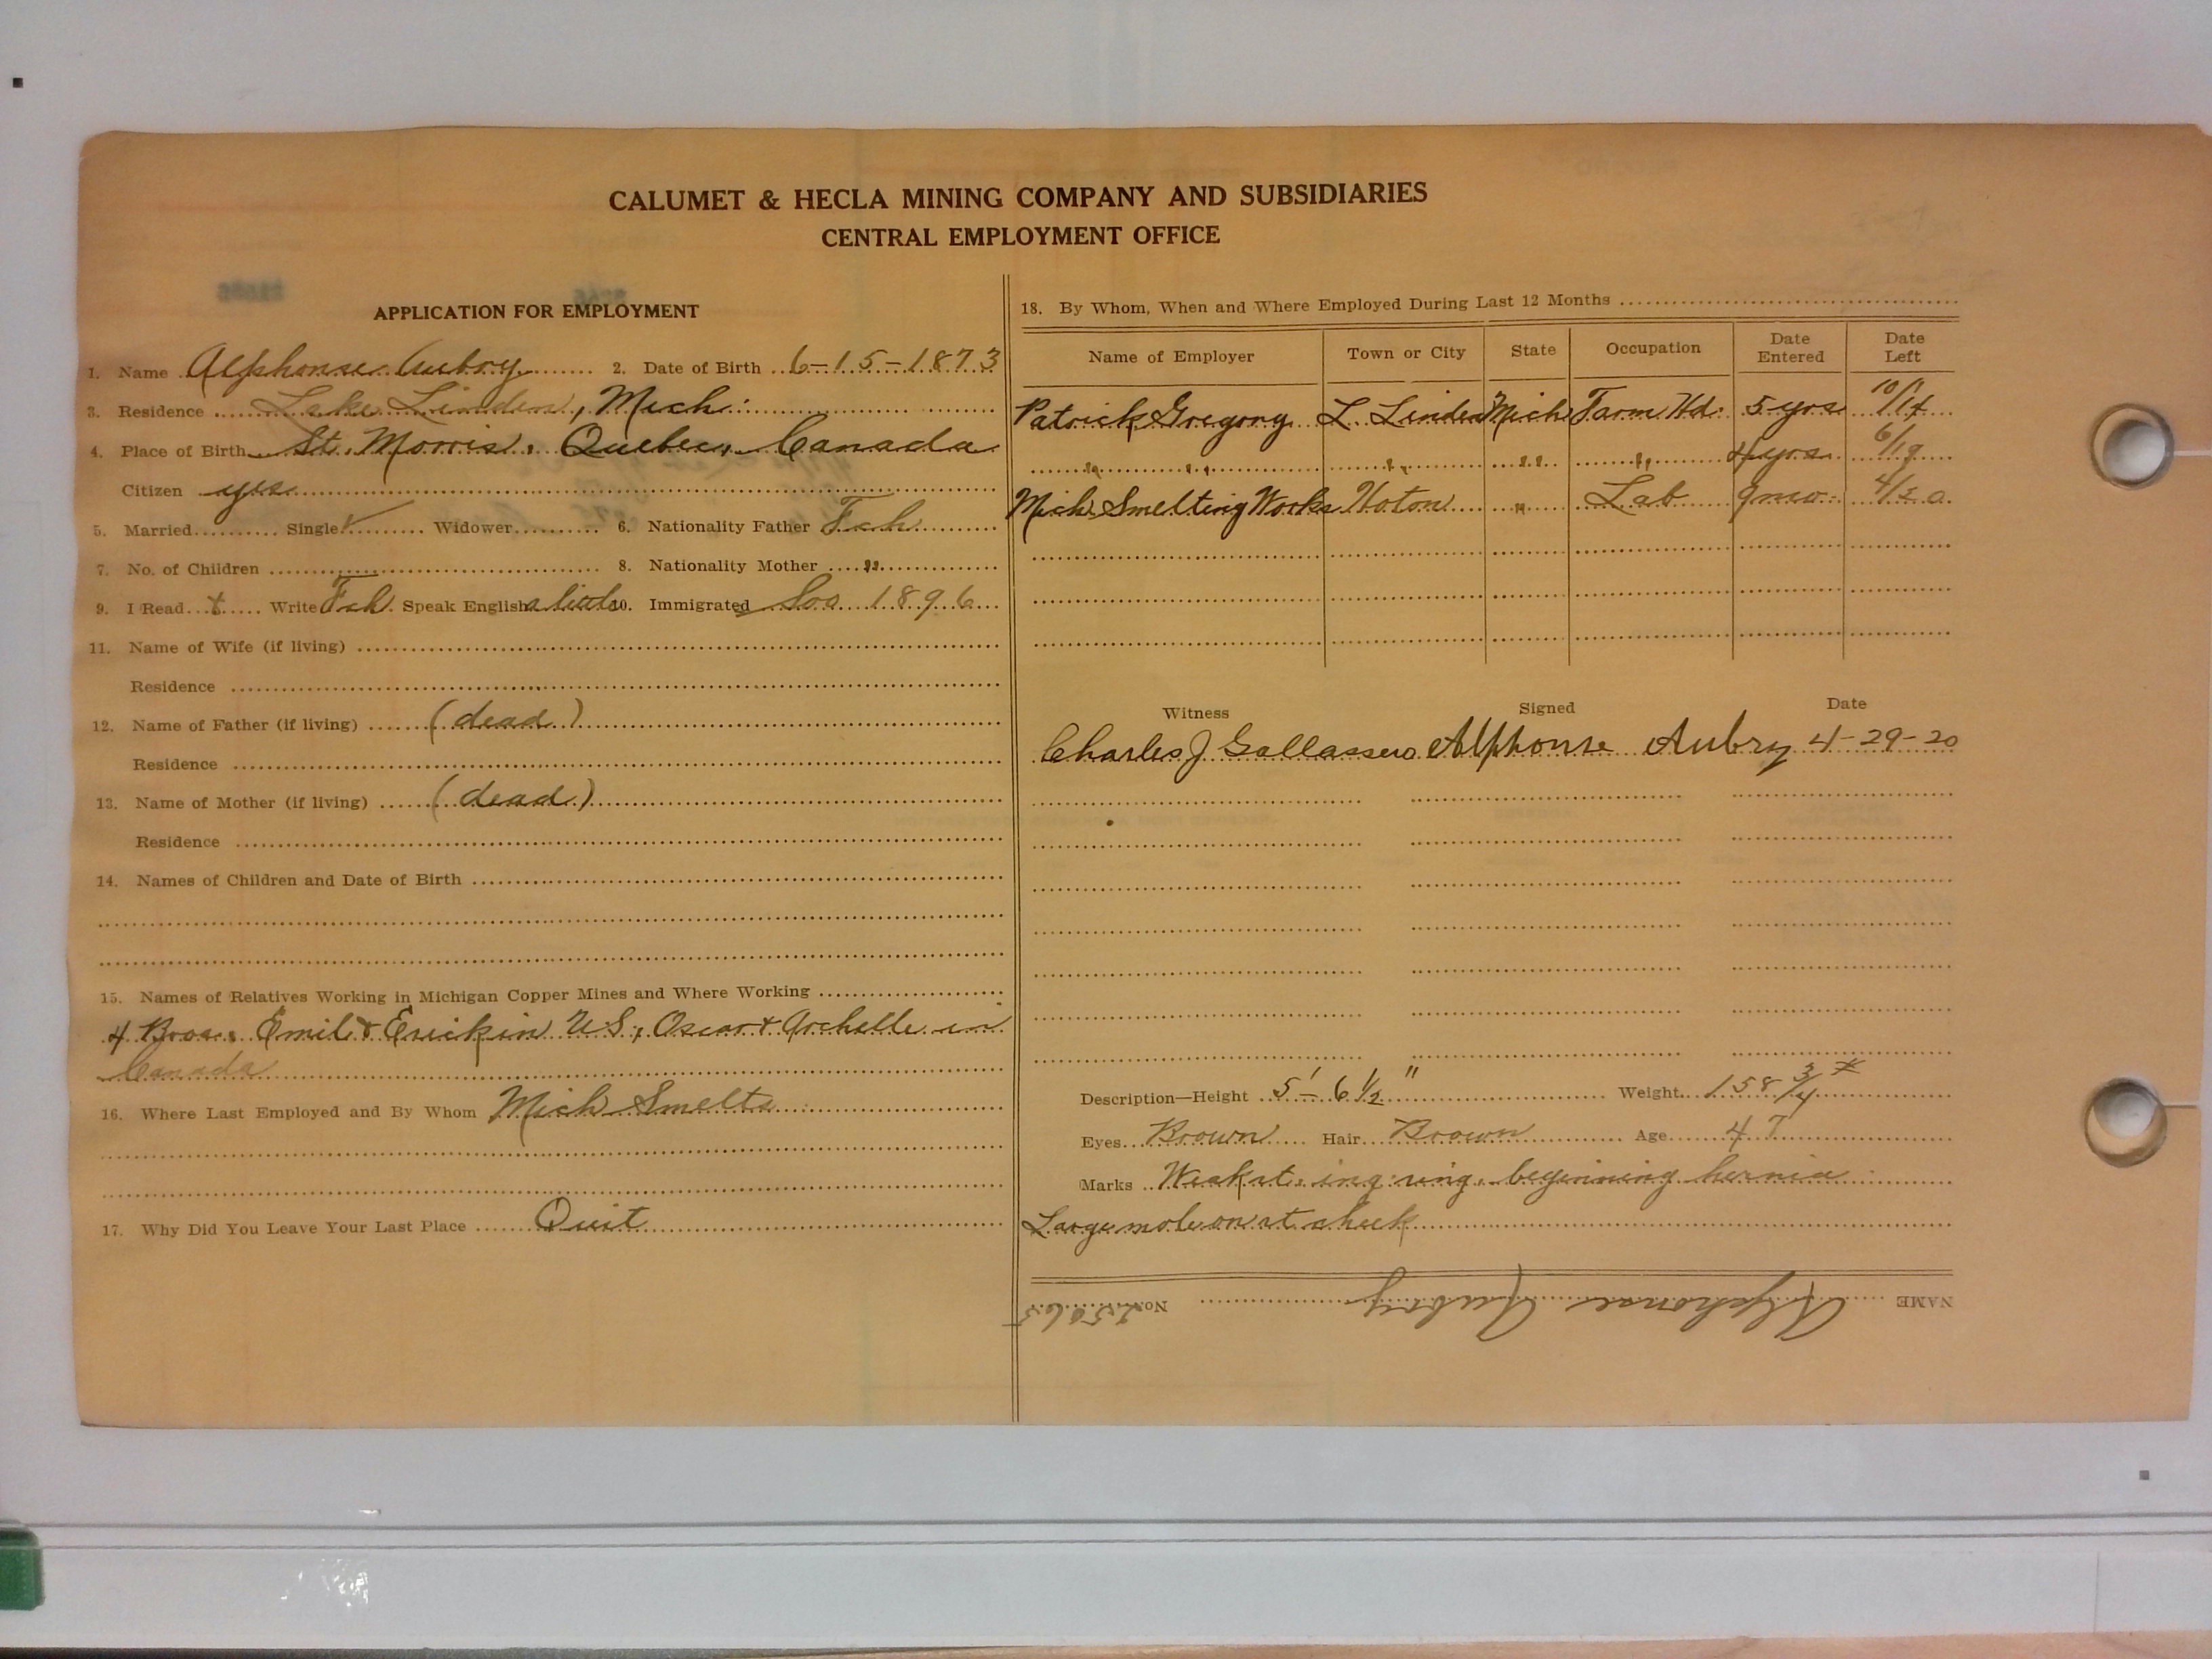 CALUMET & HECLA MINING COMPANY AND SUBSIDIARIES
CENTRAL EMPLOYMENT OFFICE
APPLICATION FOR EMPLOYMENT
1. Name Alphonse Aubry 2. Date of Birth 6-15-1873
3. Residence Lake Linden, Mich.
4. Place of Birth St. Morris, Quebec, Canada
Citizen yes
5. Married Single ✓ Widower 6. Nationality Father Fch
7. No. of Children 8. Nationality Mother "
9. I Read + Write Fch Speak English a little 10. Immigrated Soo 1896
11. Name of Wife (if living)
Residence
12. Name of Father (if living) (dead)
Residence
13. Name of Mother (if living) (dead)
Residence
14. Names of Children and Date of Birth
15. Names of Relatives Working in Michigan Copper Mines and Where Working
4 Bros. Emil & Erick in U.S., Oscar & Archelle in
Canada
16. Where Last Employed and By Whom Mich Smelts
17. Why Did You Leave Your Last Place Quit
18. By Whom, When and Where Employed During Last 12 Months
Name of Employer Town or City State Occupation Date Entered Date Left
Patrick Gregory L. Linden Mich Farm Hd. 5 yrs 10/14
" " " " " 4 yrs. 6/19
Mich. Smelting Works Hoton " Lab 9 mo. 4/20
Witness Signed Date
Charles J Gallassero Alphonse Aubry 4-29-20
Description—Height 5'-6 1/2" Weight 158 3/4 #
Eyes Brown Hair Brown Age 47
Marks Weak rt. ing. ring. beginning hernia
Large mole on rt cheek
NAME Alphonse Aubry No. 25065